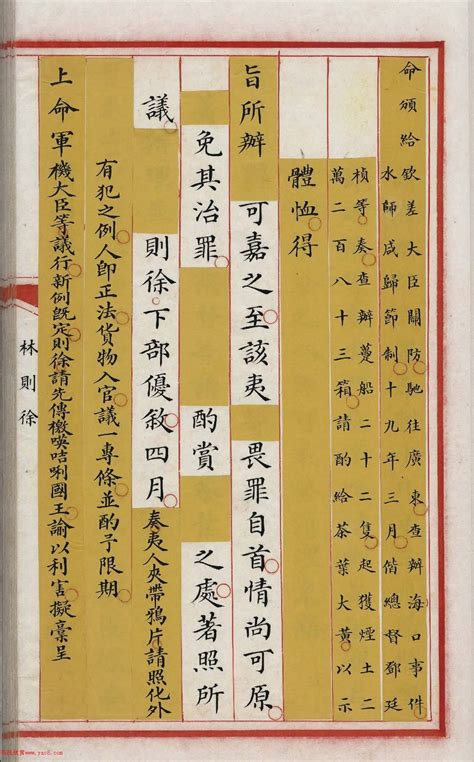 命頒給欽差大臣關防馳往廣東查辦海口事件
水師咸歸節制十九年三月偕總督鄧廷
楨等奏查辦躉船二十二隻起獲煙土二
萬二百八十三箱請酌給茶葉大黃以示
體恤得
旨所辦可嘉之至該夷畏罪自首情尚可原
免其治罪酌賞之處著照所
議則徐下部優敘四月奏夷人夾帶鴉片請照化外
有犯之例人即正法貨物入官議一專條並酌予限期
上命軍機大臣等議行新例既定則徐請先傳檄𠸄咭唎國王諭以利害擬稾呈
林則徐
www.yac8.com